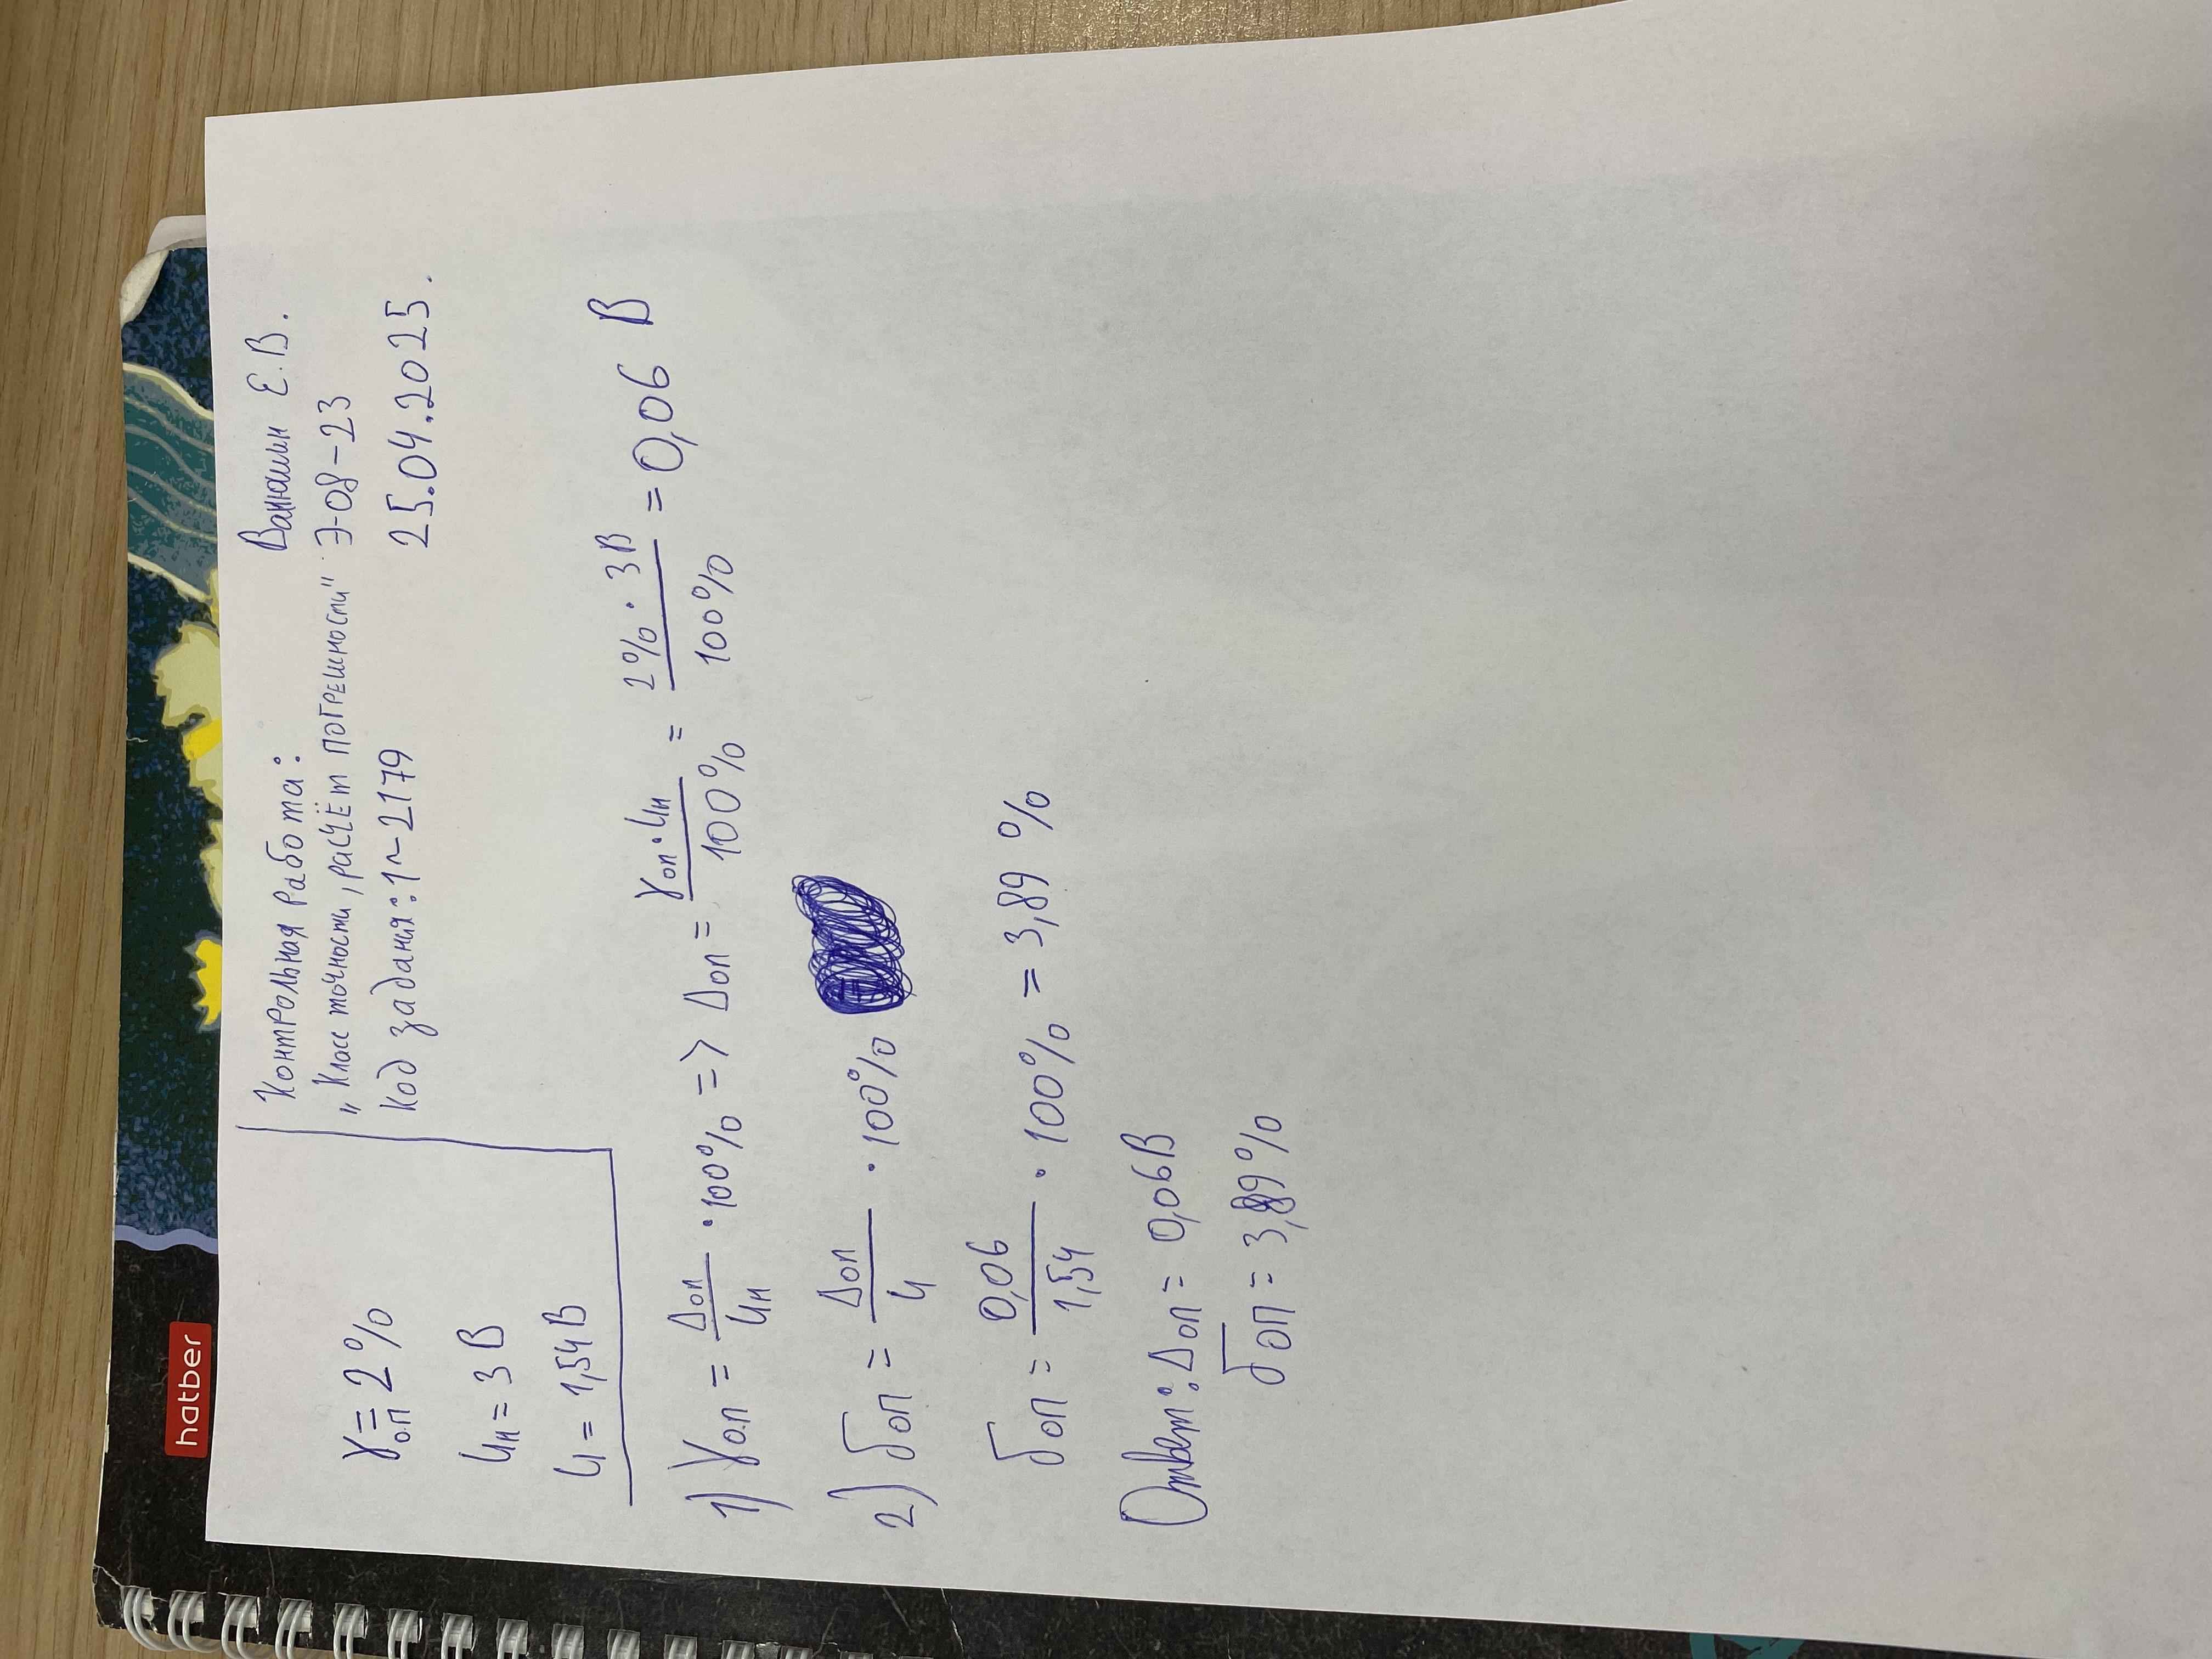 hatber
Контрольная работа:
"Класс точности, расчёт погрешности"
Код задания: 1~2179
Ванюшин Е.В.
Э-08-23
25.04.2025.
γоп = 2%
Uн = 3 В
U = 1,54 В
1) γоп = Δоп/Uн · 100% => Δоп = γоп · Uн/100% = 2% · 3В/100% = 0,06 В
2) δоп = Δоп/U · 100%
δоп = 0,06/1,54 · 100% = 3,89 %
Ответ: Δоп = 0,06В
δоп = 3,89%